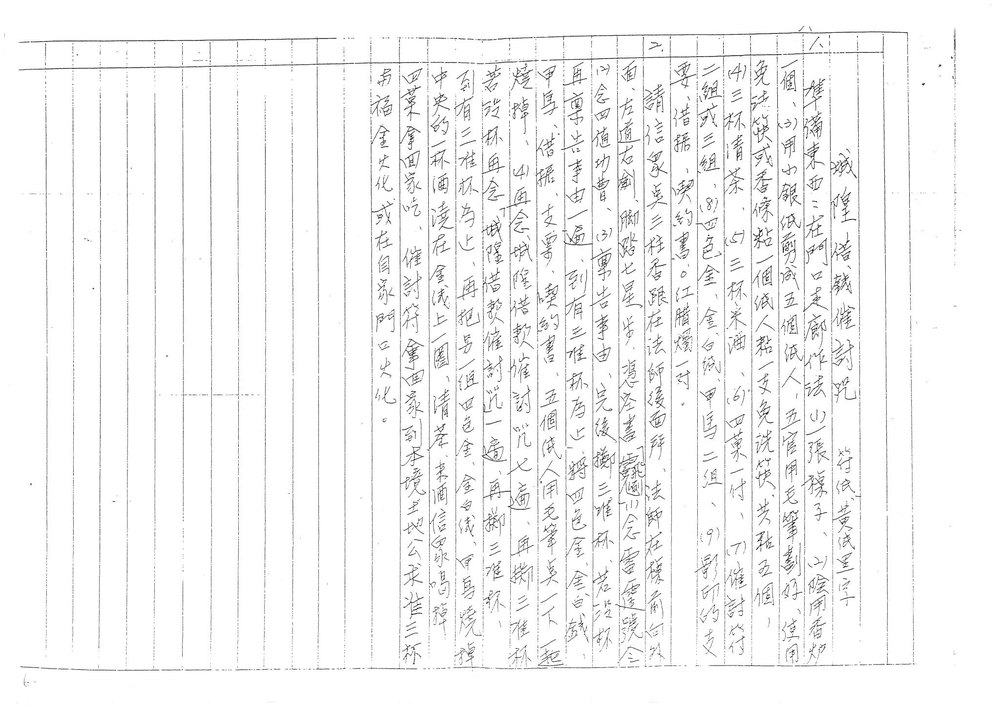 城隍借錢催討咒 符紙、黃紙黑字
1. 準備東西:在門口走廊作法(1)一張椅子、(2)陰用香炉
一個、(3)用小銀紙剪成五個紙人，五官用毛筆劃好、使用
免洗筷或香條粘一個紙人黏一支免洗筷、共黏五個，
(4)三杯清茶、(5)三杯米酒、(6)四菓一付、(7)催討符
二組或三組、(8)四色金、金白錢、甲馬二組、(9)影印的支
票、借据、契約書。紅腊燭一对。
2. 請信眾吳三柱香跟在法師後面拜、法師在椅前向外
面、左道右劍、脚踏七星步，憑空書 (1)念雷霆號令
(2)念四值功曹、(3)稟告事由、完後擲三准杯、若沒杯
再稟告事由一遍、到有三准杯為止、將四色金、金白錢、
甲馬、借据、支票、契約書、五個紙人用毛筆點一下一起
燒掉、(4)再念城隍借款催討咒七遍、再擲三准杯
若沒杯再念「城隍借款催討咒一遍、再擲三准杯、
到有三准杯為止、再把另一組四色金、金白錢、甲馬燒掉
中央的一杯酒澆在金錢上一圈、清茶、米酒信眾喝掉
四菓拿回家吃、催討符拿回家到本境土地公求准三杯
与福金火化或在自家門口火化。
6.